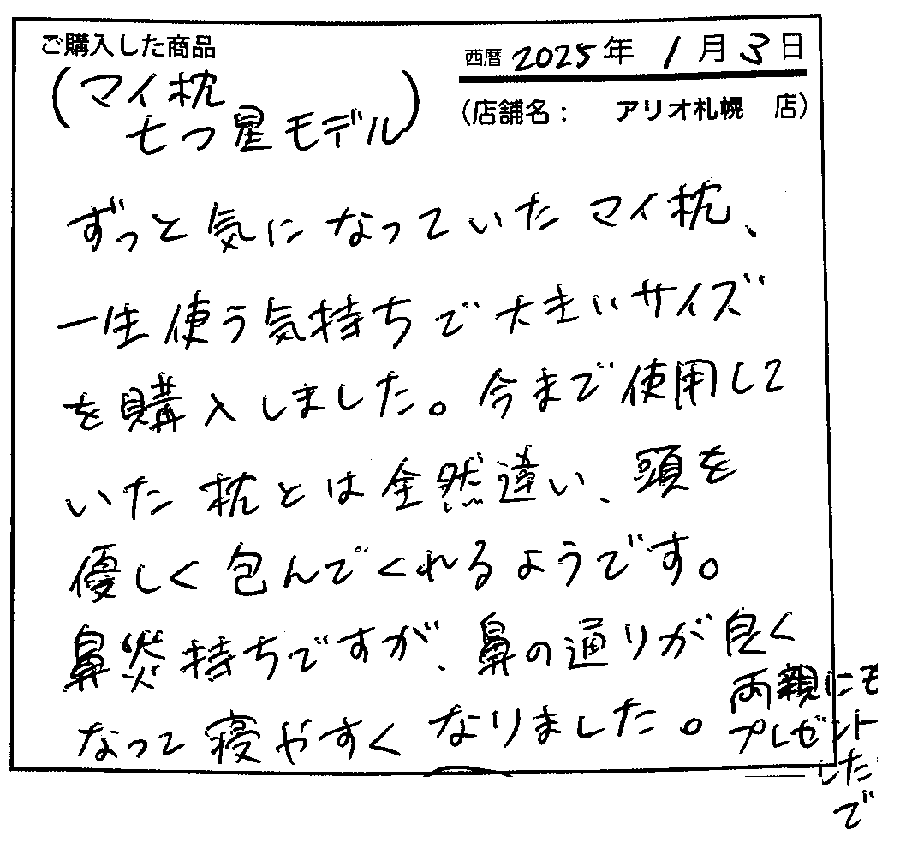 ご購入した商品
西暦 2025年 1月 3日
(マイ枕
七つ星モデル)
(店舗名： アリオ札幌 店)
ずっと気になっていたマイ枕、
一生使う気持ちで大きいサイズ
を購入しました。今まで使用して
いた枕とは全然違い、頭を
優しく包んでくれるようです。
鼻炎持ちですが、鼻の通りが良く
なって寝やすくなりました。
両親にも
プレゼント
した
で